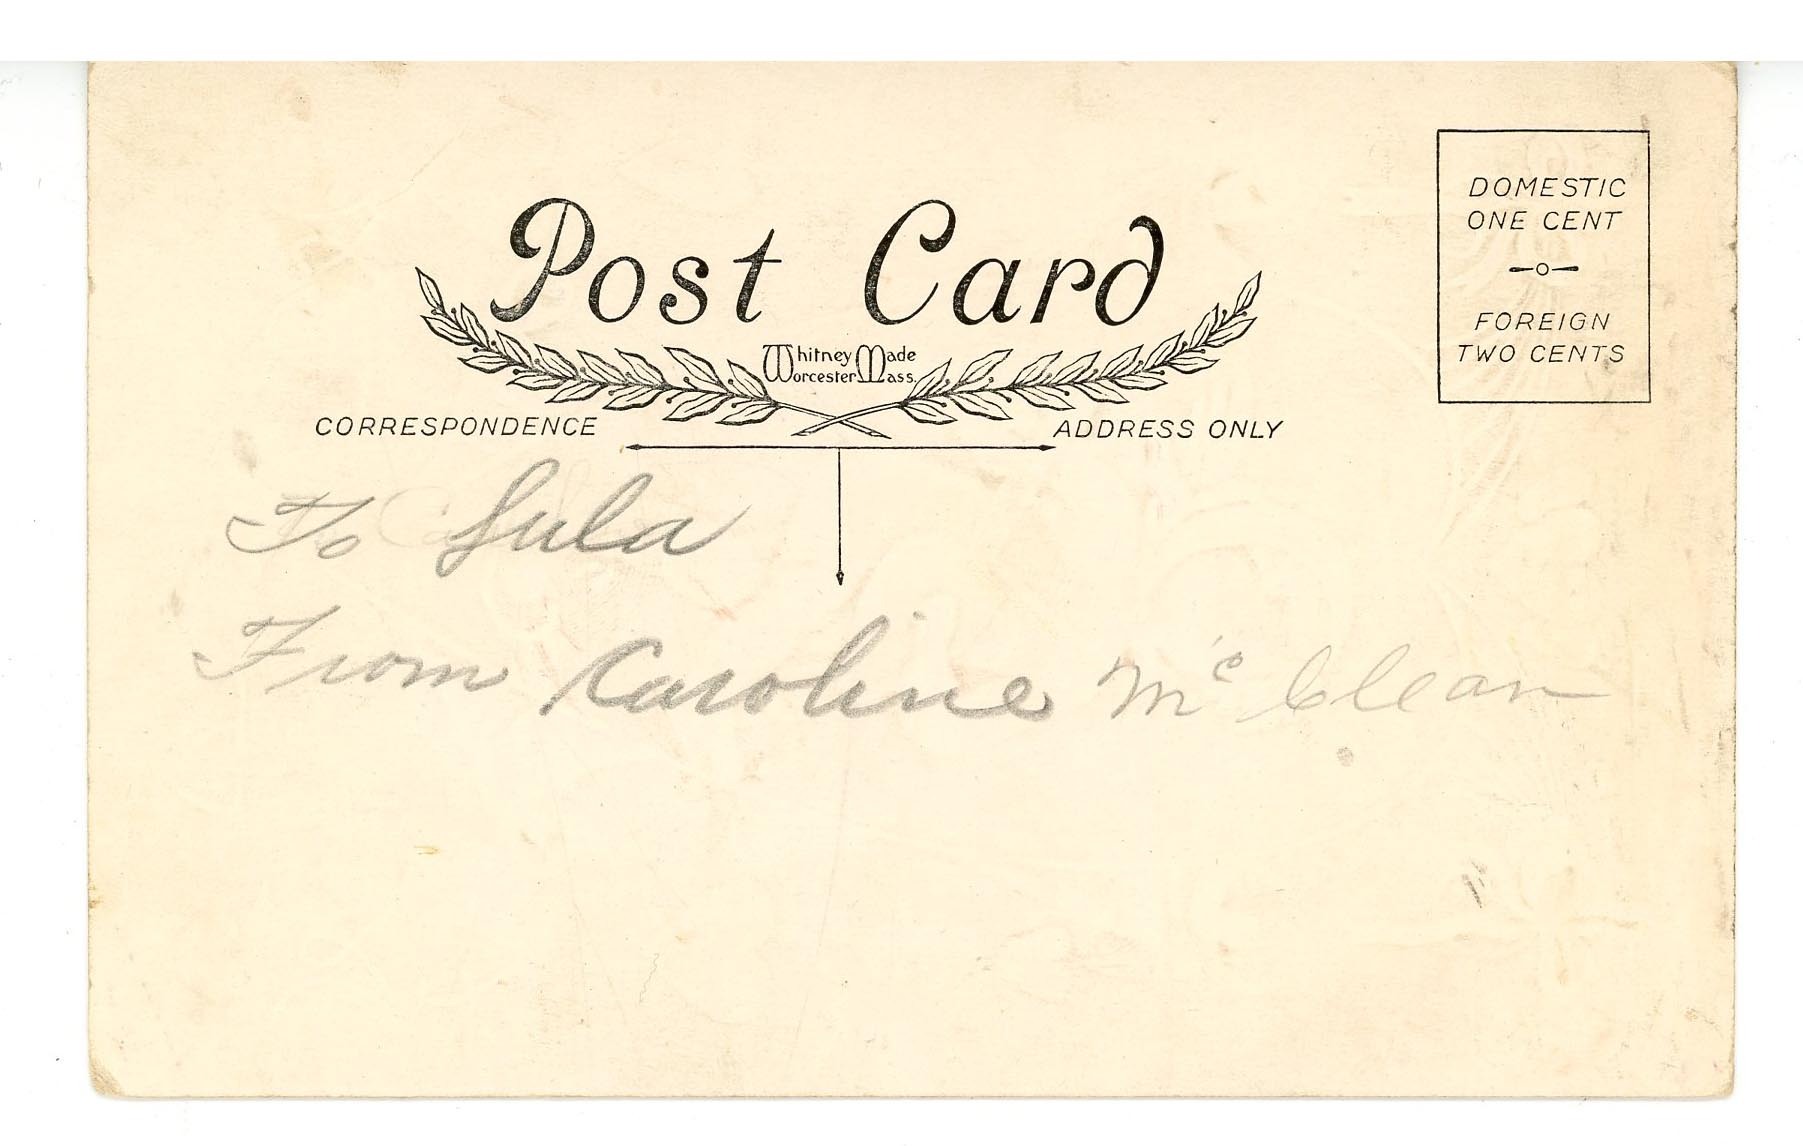 Post Card
Whitney Made
Worcester Mass.
DOMESTIC
ONE CENT
FOREIGN
TWO CENTS
CORRESPONDENCE
ADDRESS ONLY
To Lula
From Caroline Mc Clean